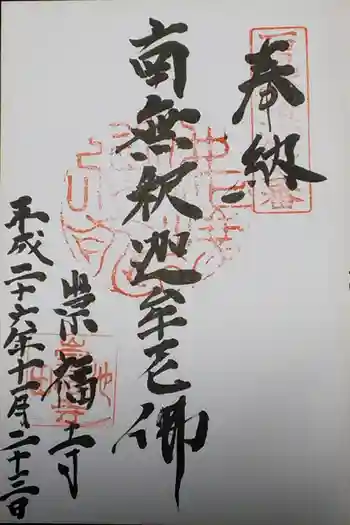 奉納
南無釈迦牟尼佛
崇福寺
平成二十六年十一月二十三日